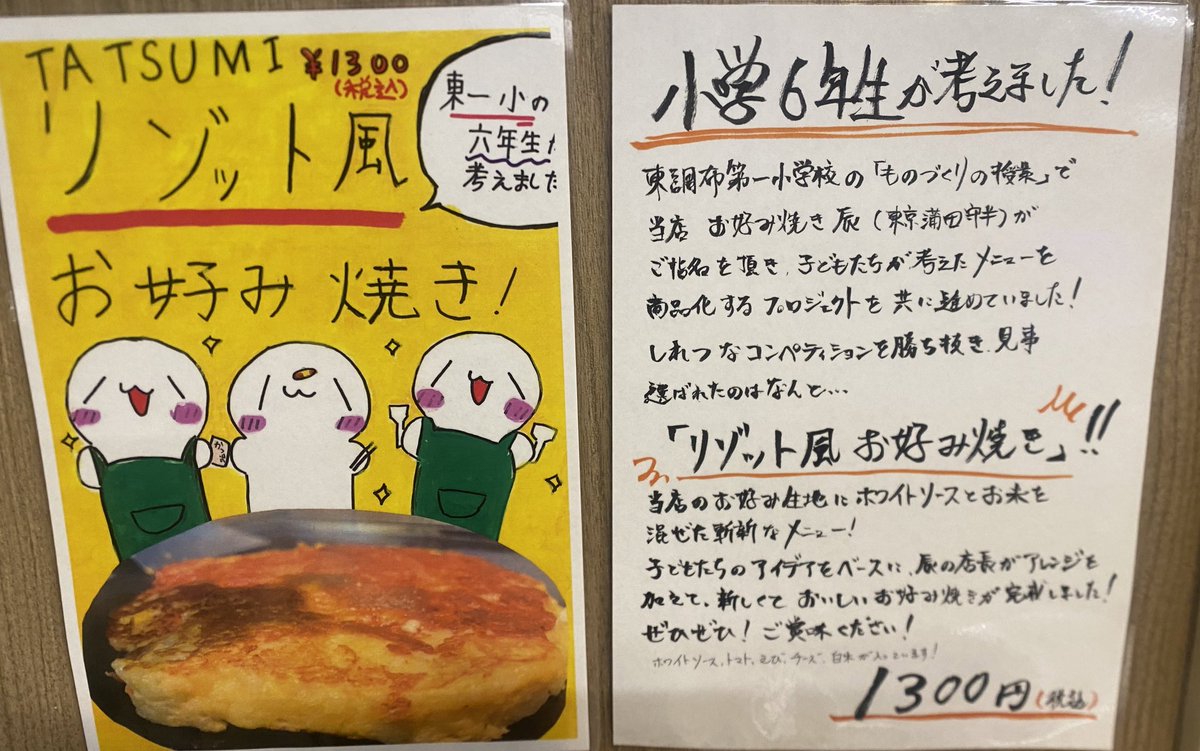 TATSUMI
¥1300
(税込)
リゾット風
お好み焼き!
東一小の
六年生が
考えました
かつお
小学6年生が考えました!
東調布第一小学校の「ものづくりの授業」で
当店 お好み焼き 辰(東京蒲田)が
ご指名を頂き、子どもたちが考えたメニューを
商品化するプロジェクトを共に進めていました!
しれつなコンペティションを勝ち抜き、見事
選ばれたのはなんと…
「リゾット風 お好み焼き」!!
当店のお好み生地にホワイトソースとお米を
混ぜた斬新なメニュー!
子どもたちのアイデアをベースに、辰の店長がアレンジを
加えて、新しくて おいしいお好み焼きが完成しました!
ぜひぜひ! ご賞味ください!
ホワイトソース、トマト、えび、チーズ、白米が入っています!
1300円(税込)